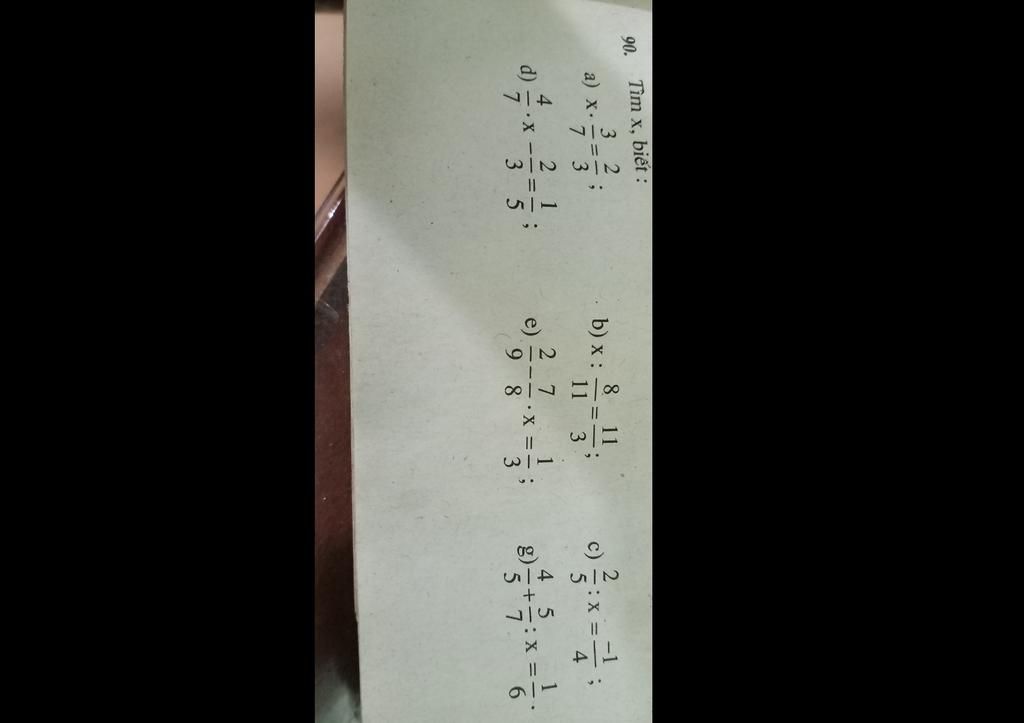 90. Tìm x, biết :
a) x · 3/7 = 2/3 ; b) x : 8/11 = 11/3 ; c) 2/5 : x = -1/4 ;
d) 4/7 · x − 2/3 = 1/5 ; e) 2/9 − 7/8 · x = 1/3 ; g) 4/5 + 5/7 : x = 1/6 .